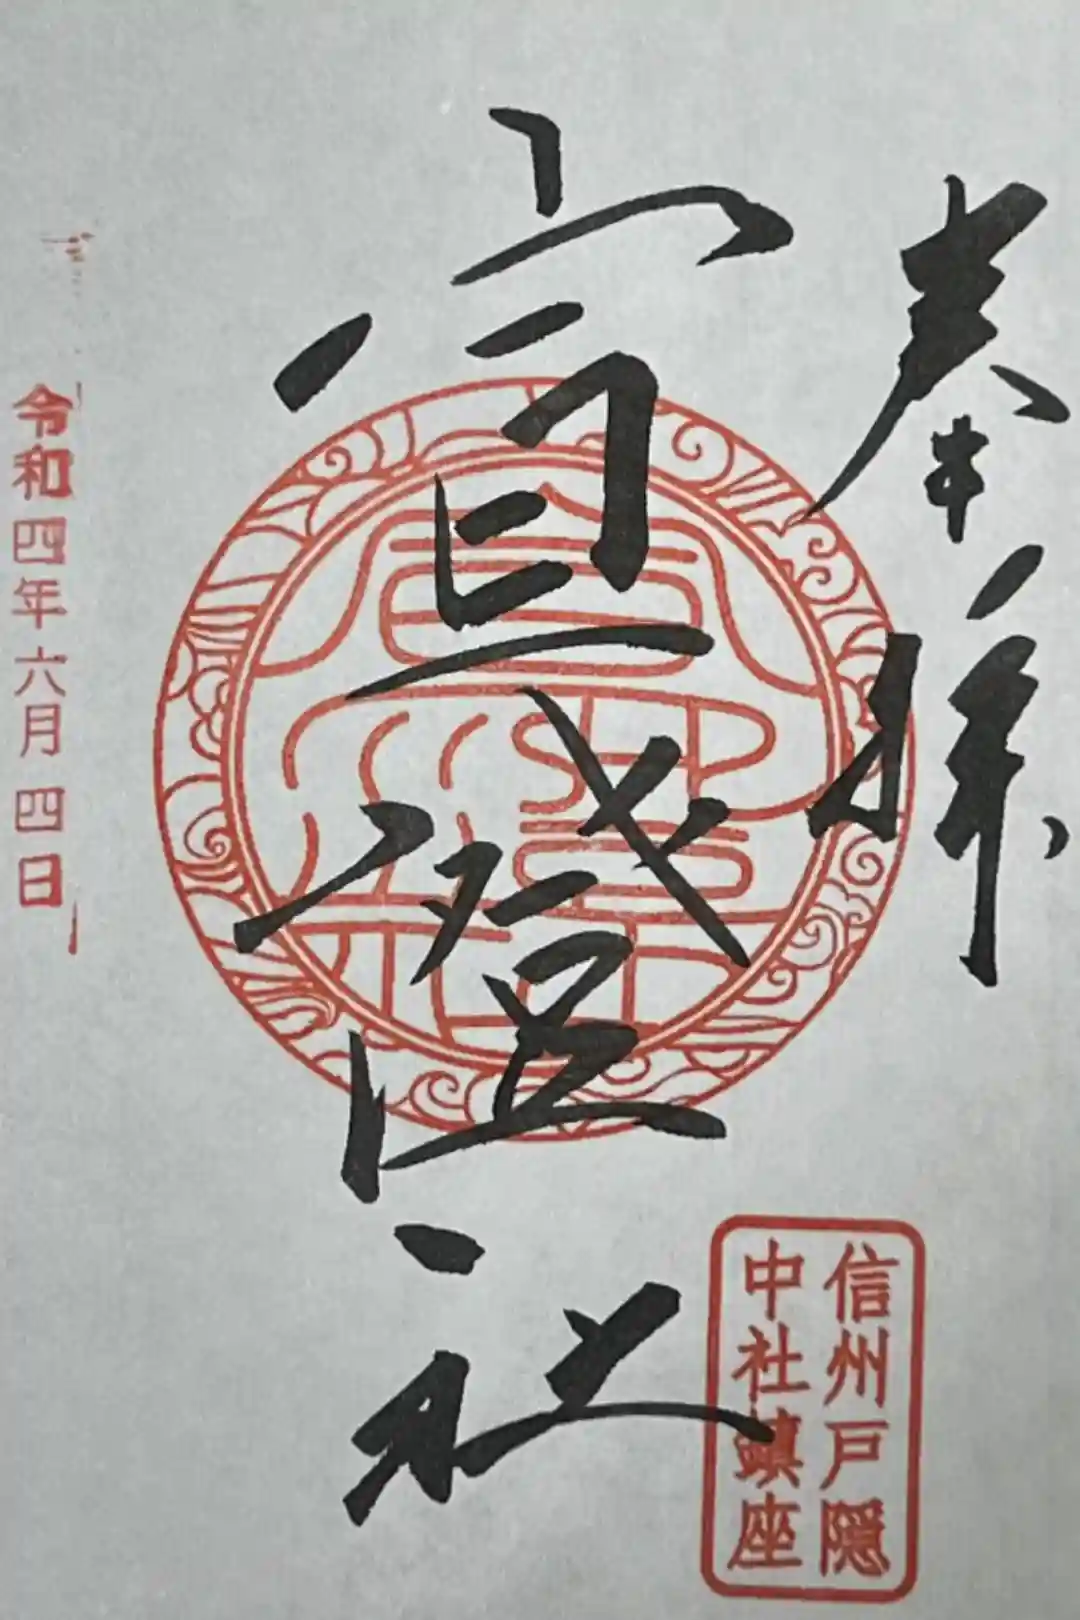 奉拝
宣澄社
信州戸隠
中社鎮座
令和四年六月四日